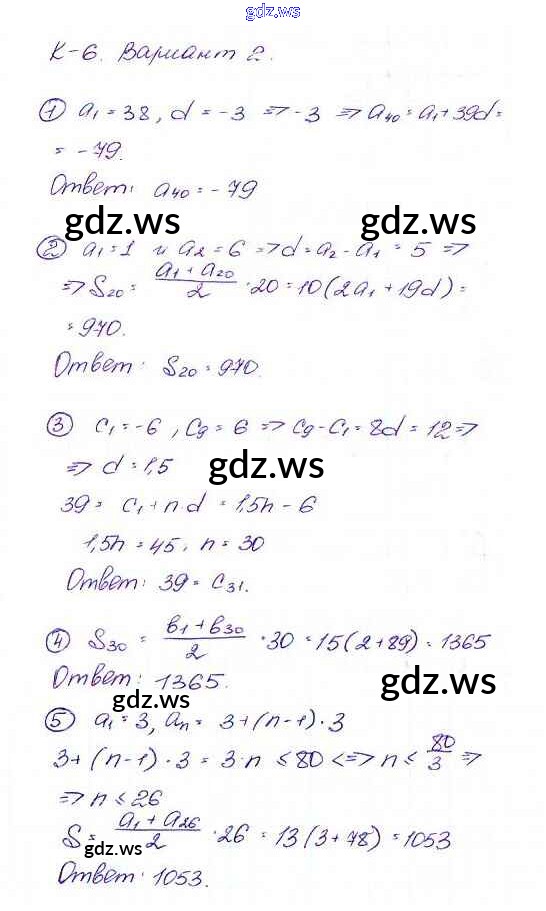 gdz.ws
К-6. Вариант 2.
① a₁ = 38, d = -3 => -3 => a₄₀ = a₁ + 39d =
= -79.
Ответ: a₄₀ = -79
gdz.ws gdz.ws
② a₁ = 1 и a₂ = 6 => d = a₂ - a₁ = 5 =>
=> S₂₀ = (a₁ + a₂₀)/2 · 20 = 10(2a₁ + 19d) =
= 970.
Ответ: S₂₀ = 970.
③ c₁ = -6, c₉ = 6 => c₉ - c₁ = 8d = 12 =>
=> d = 1,5
gdz.ws
39 = c₁ + n d = 1,5n - 6
1,5n = 45, n = 30
Ответ: 39 = c₃₁.
④ S₃₀ = (b₁ + b₃₀)/2 · 30 = 15(2 + 89) = 1365
Ответ: 1365.
gdz.ws gdz.ws
⑤ a₁ = 3, aₙ = 3 + (n-1) · 3
3 + (n-1) · 3 = 3·n ≤ 80 <=> n ≤ 80/3 =>
=> n ≤ 26
S = (a₁ + a₂₆)/2 · 26 = 13(3 + 78) = 1053
gdz.ws
Ответ: 1053.